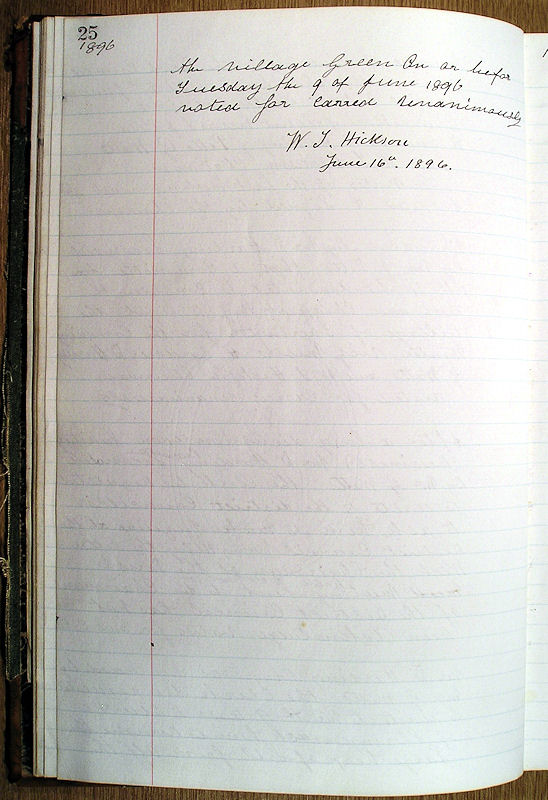 25
1896
the village Green On or befor
Tuesday the 9 of June 1896
voted for carred Unanimously
W. J. Hickson
June 16th. 1896.